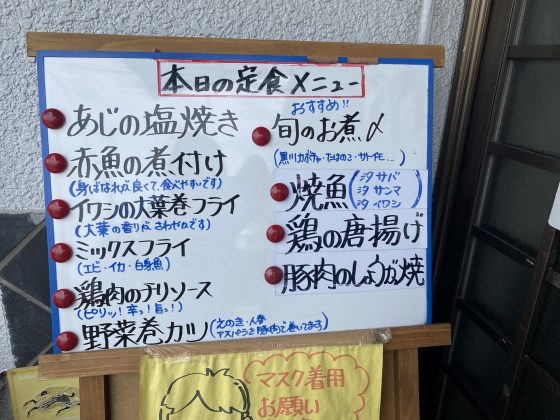 本日の定食メニュー
あじの塩焼き
赤魚の煮付け
(身ばなれが良くて、食べやすいです)
イワシの大葉巻フライ
(大葉の香りが、さわやかです)
ミックスフライ
(エビ・イカ・白身魚)
鶏肉のチリソース
(ピリッ!辛っ!旨っ!)
野菜巻カツ
(えのき・人参
アスパラを豚肉で巻いてます)
おすすめ!!
旬のお煮〆
(黒川カボチャ・たけのこ・サトイモ…)
焼魚
汐サバ
汐サンマ
汐イワシ
鶏の唐揚げ
豚肉のしょうが焼
マスク着用
お願い